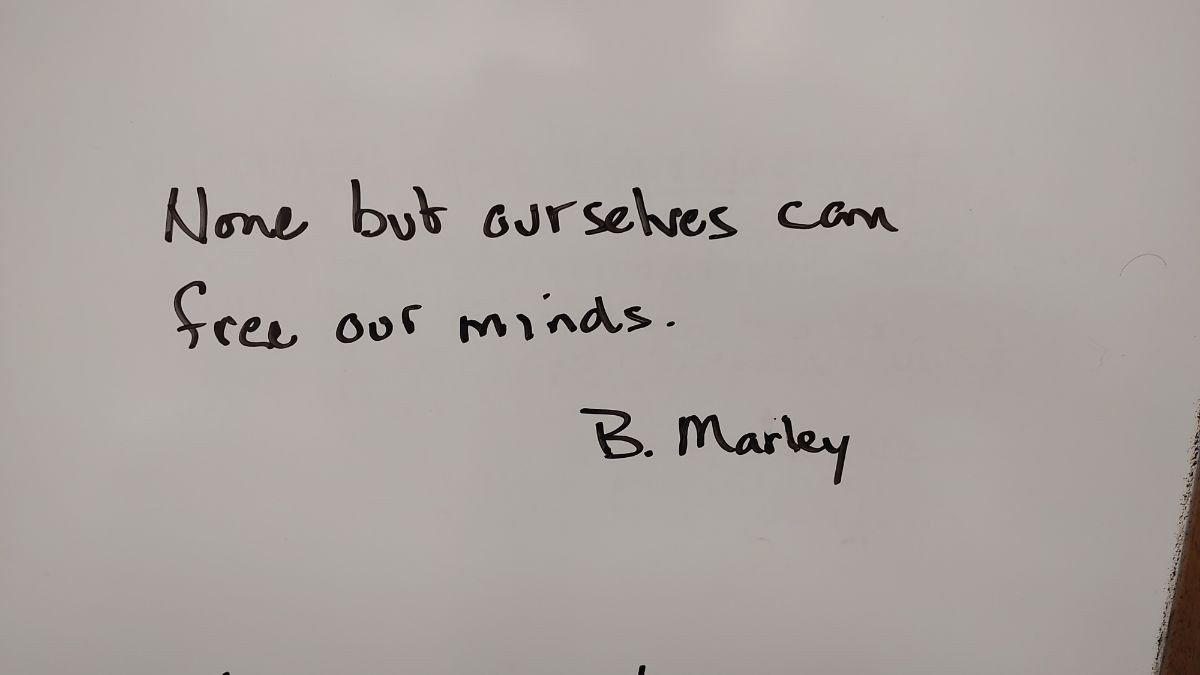 None but ourselves can
free our minds.
B. Marley